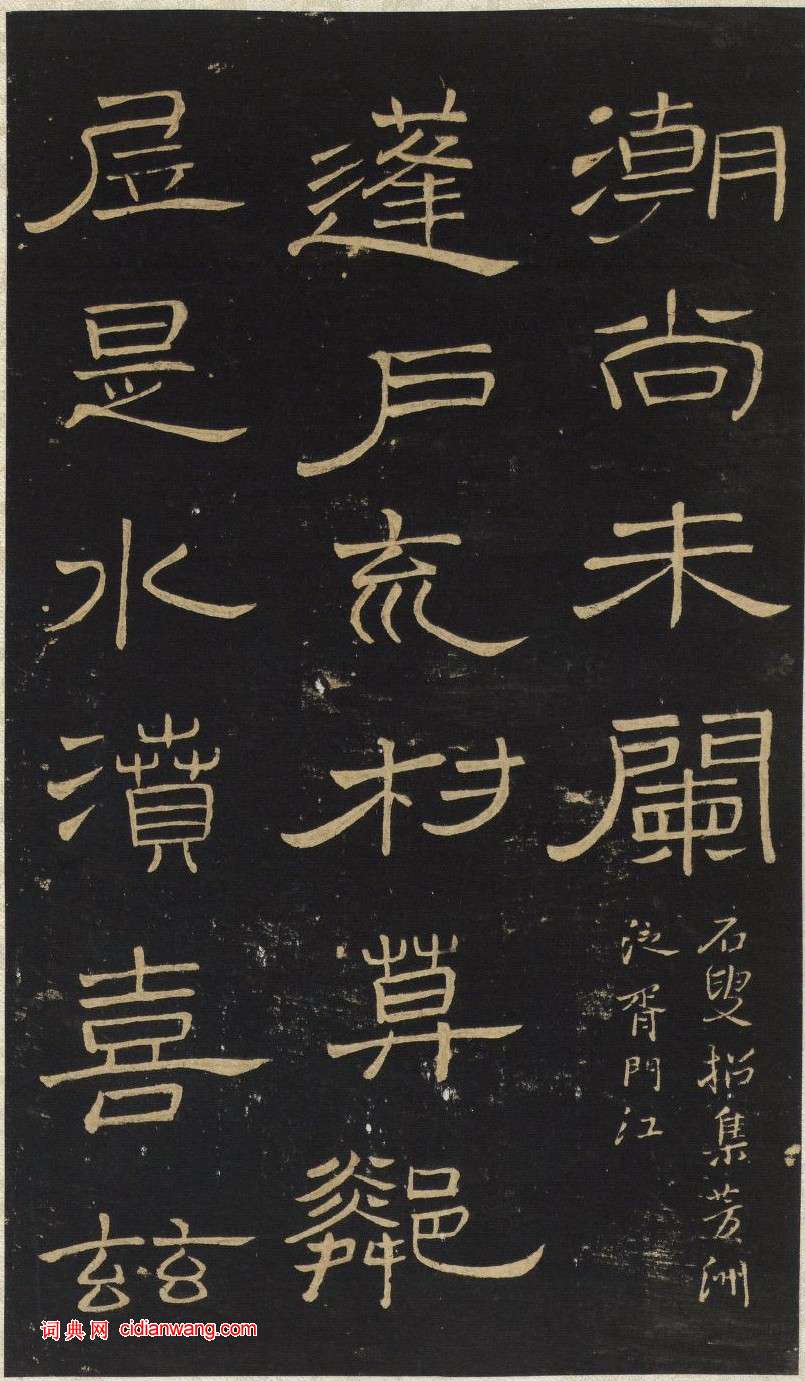 潮尚未闌
石叟招集芳洲
泛胥門江
蓬戶充村算鄰
是水濆喜茲
词典网 cidianwang.com